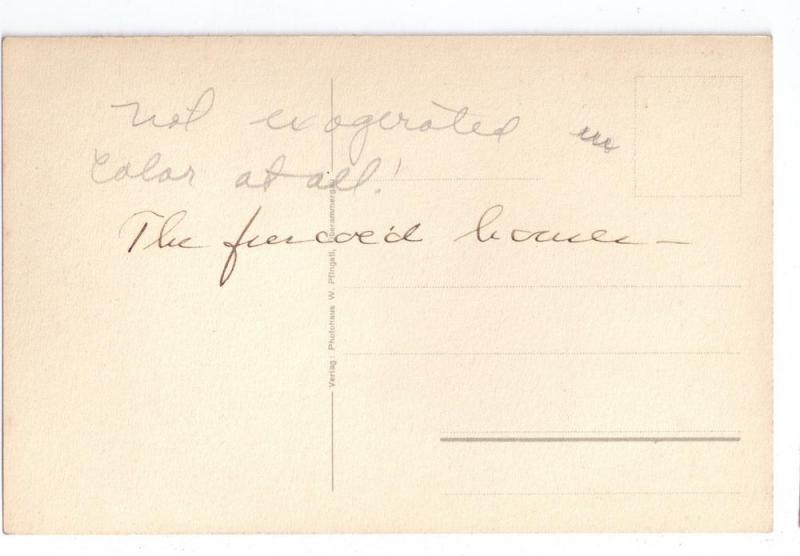 not exagerated in
color at all!
The frescoe'd houses —
Verlag: Photohaus W. Pfingstl, Oberammergau